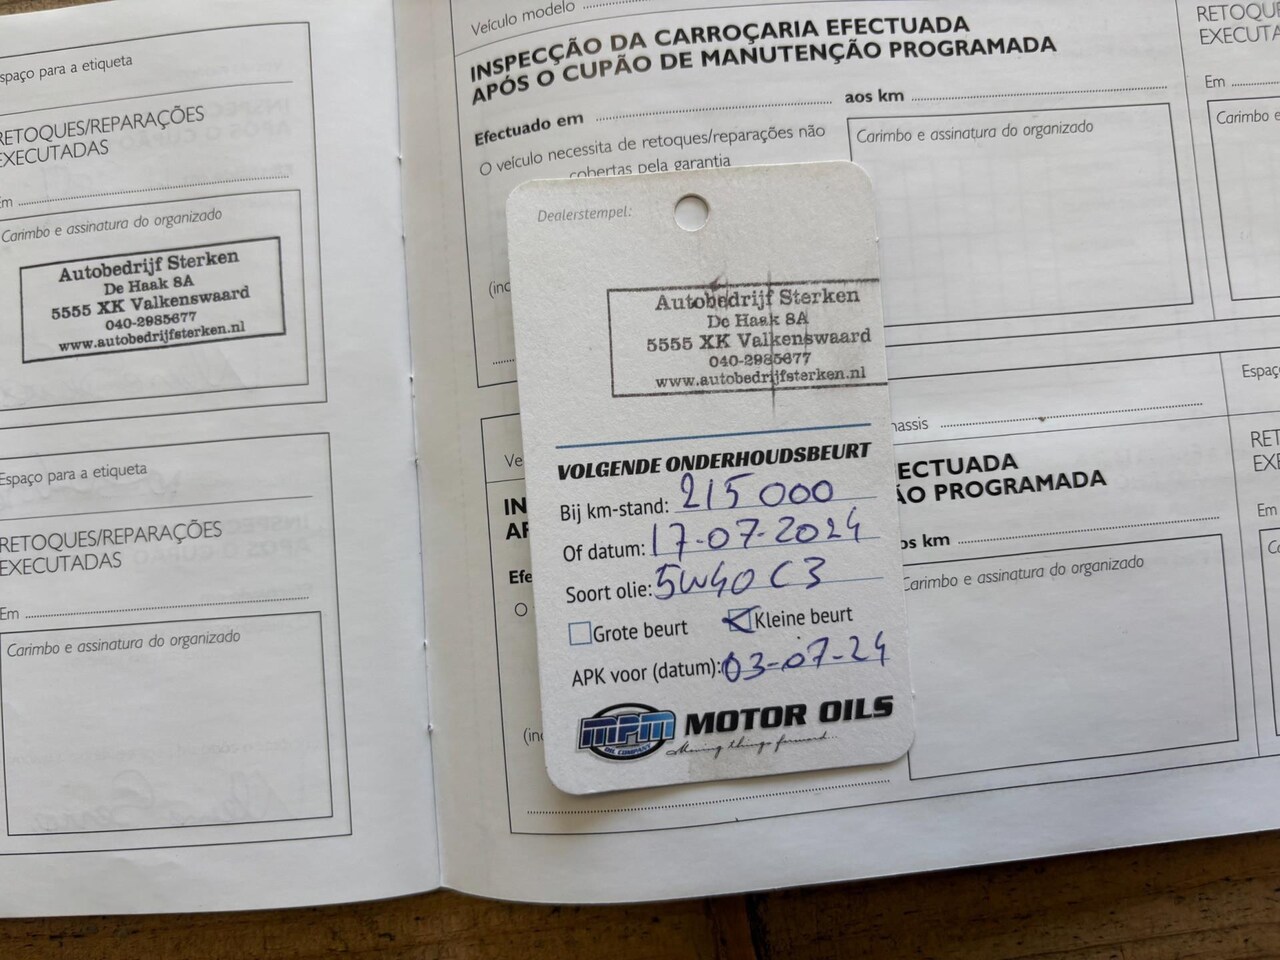 Espaço para a etiqueta
RETOQUES/REPARAÇÕES
EXECUTADAS
Em
Carimbo e assinatura do organizado
Autobedrijf Sterken
De Haak 8A
5555 XK Valkenswaard
040-2985677
www.autobedrijfsterken.nl
Espaço para a etiqueta
RETOQUES/REPARAÇÕES
EXECUTADAS
Em
Carimbo e assinatura do organizado
Veículo modelo
INSPECÇÃO DA CARROÇARIA EFECTUADA
APÓS O CUPÃO DE MANUTENÇÃO PROGRAMADA
Efectuado em
aos km
O veículo necessita de retoques/reparações não
cobertas pela garantia
Carimbo e assinatura do organizado
(inc
RETOQUE
EXECUTA
Em
Carimbo e
Dealerstempel:
Autobedrijf Sterken
De Haak 8A
5555 XK Valkenswaard
040-2985677
www.autobedrijfsterken.nl
VOLGENDE ONDERHOUDSBEURT
Bij km-stand: 215 000
Of datum: 17-07-2024
Soort olie: 5W40 C3
Grote beurt
Kleine beurt
APK voor (datum): 03-07-24
MPM
OIL COMPANY
MOTOR OILS
Moving things forward...
Ve
hassis
IN
ECTUADA
AP
ÃO PROGRAMADA
Efe
os km
O
Carimbo e assinatura do organizado
(inc
Espaç
RET
EXE
Em
Ca